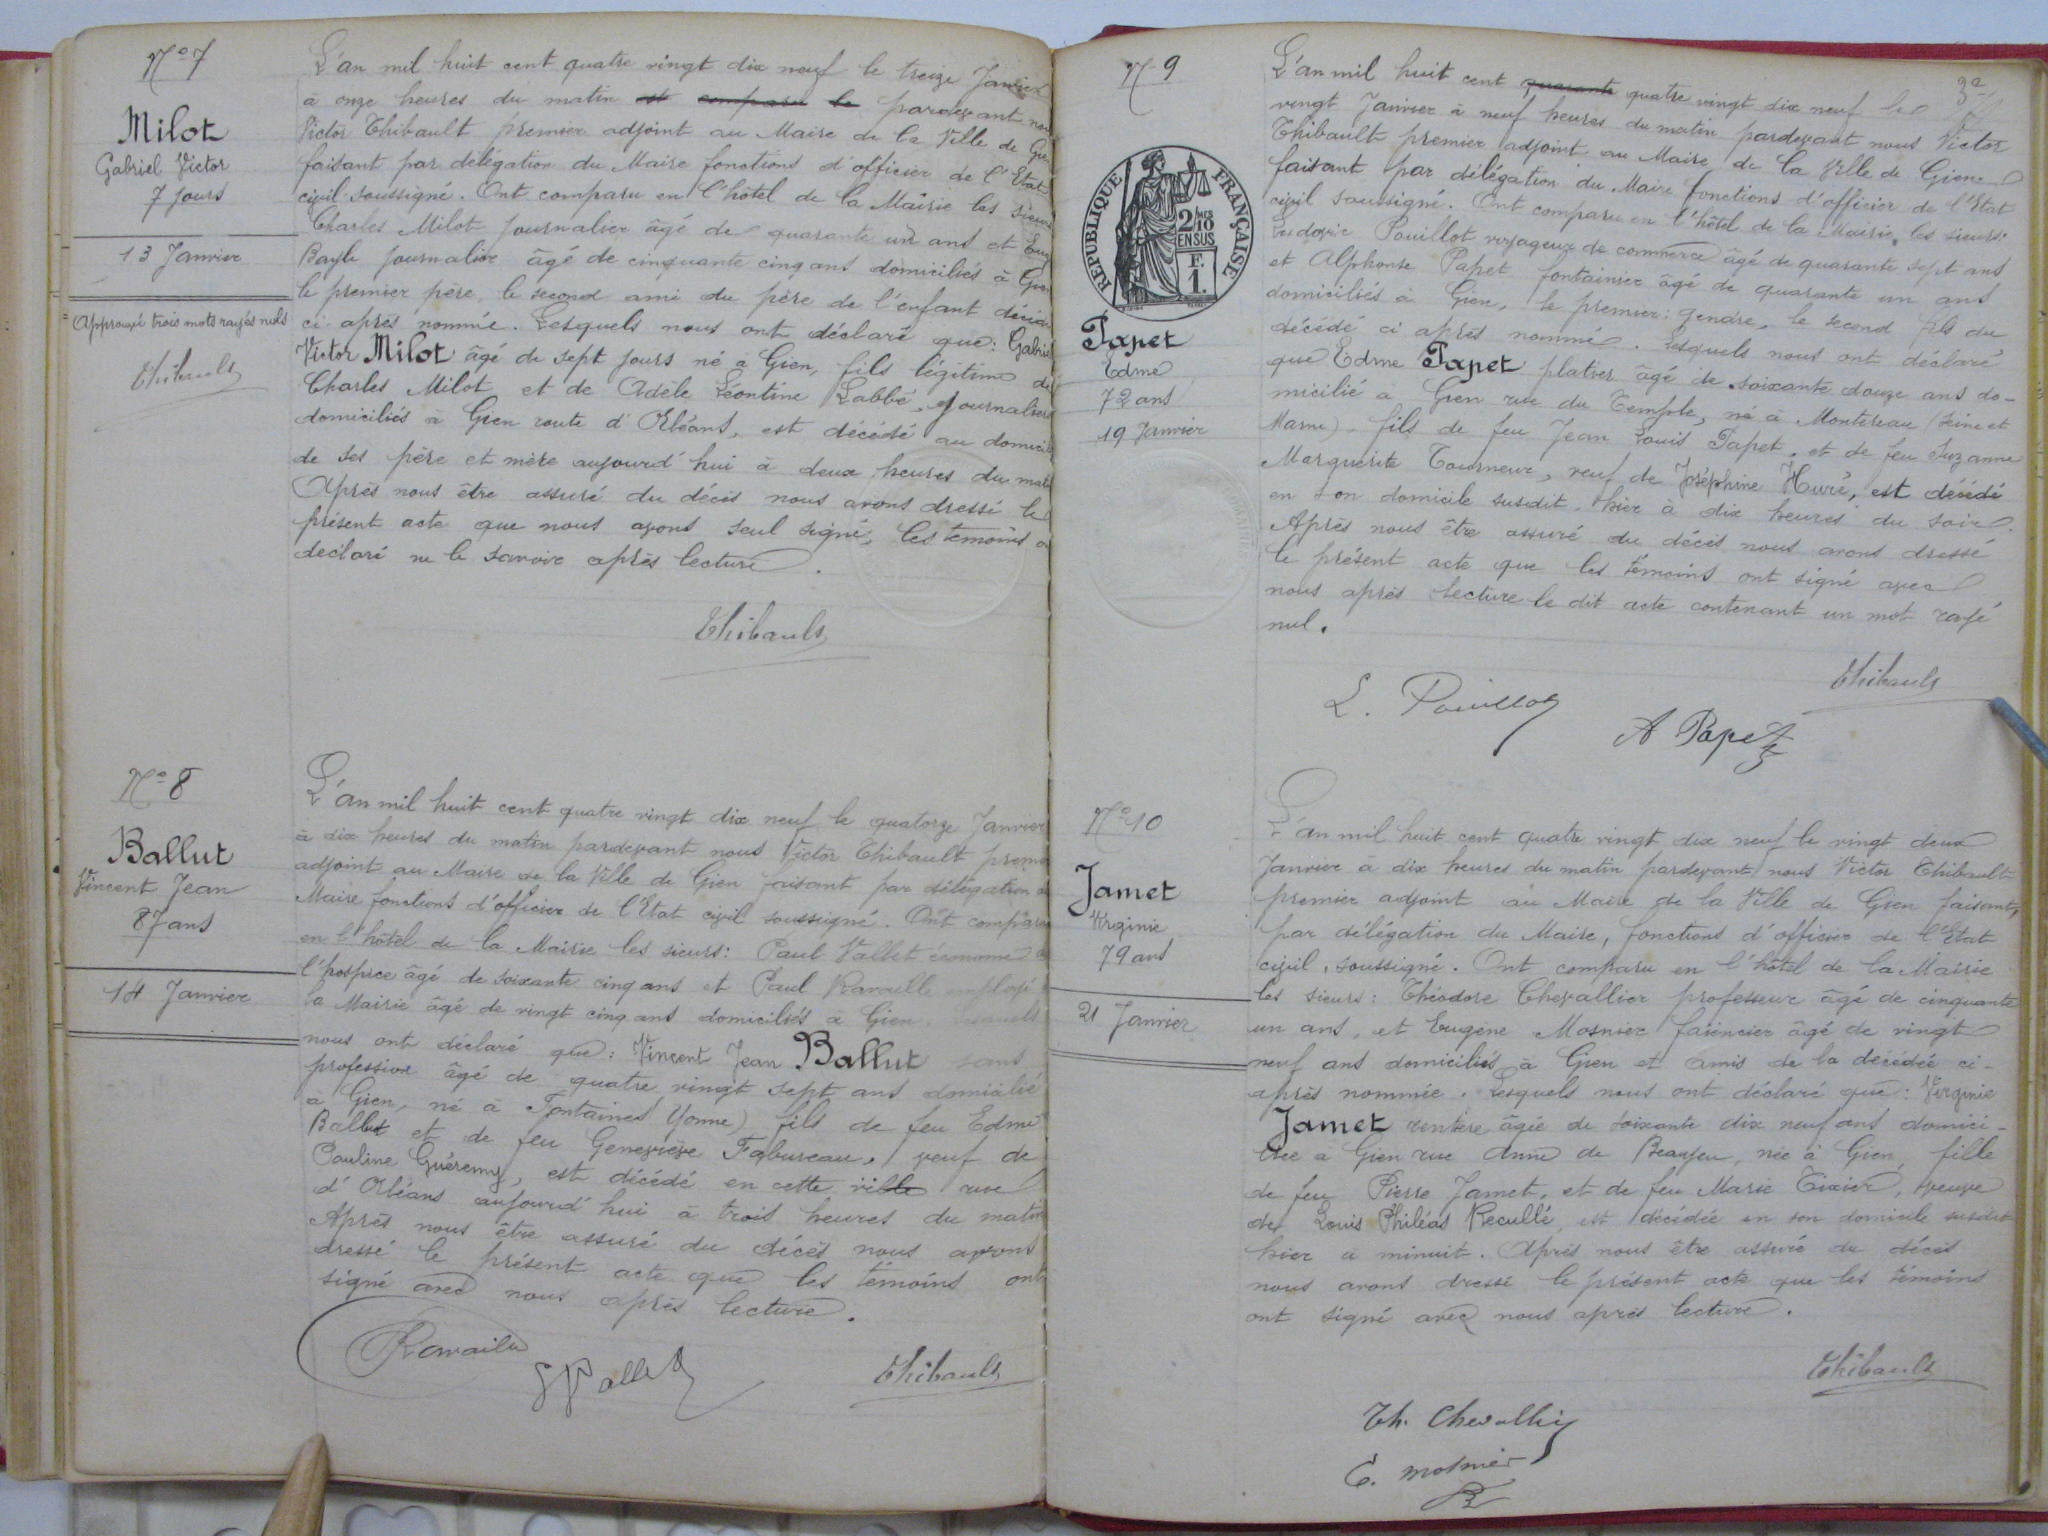 No 7
Milot
Gabriel Victor
7 jours
13 Janvier
Approuvé trois mots rayés nuls
Thibault
L'an mil huit cent quatre vingt dix neuf le treize Janvier
à onze heures du matin est comparu le pardevant nous
Victor Thibault premier adjoint au Maire de la Ville de Gien
faisant par délégation du Maire fonctions d'officier de l'Etat
civil soussigné. Ont comparu en l'hôtel de la Mairie les sieurs
Charles Milot journalier âgé de quarante un ans et
Bayle journalier âgé de cinquante cinq ans domiciliés à Gien
le premier père, le second ami du père de l'enfant
ci-après nommée. Lesquels nous ont déclaré que: Gabriel
Victor Milot âgé de sept jours né à Gien, fils légitime de
Charles Milot et de Adèle Léontine Labbé, journaliers
domiciliés à Gien route d'Orléans, est décédé au domicile
de ses père et mère aujourd'hui à deux heures du matin
Après nous être assuré du décès nous avons dressé le
présent acte que nous avons seul signé, les témoins
déclaré ne le savoir après lecture.
Thibault
No 8
Ballut
Vincent Jean
87 ans
14 Janvier
L'an mil huit cent quatre vingt dix neuf le quatorze Janvier
à dix heures du matin pardevant nous Victor Thibault premier
adjoint au Maire de la Ville de Gien faisant par délégation du
Maire fonctions d'officier de l'Etat civil soussigné. Ont comparu
en l'hôtel de la Mairie les sieurs: Paul Vallet économe de
l'hospice âgé de soixante cinq ans et Paul Ravaille employé à
la Mairie âgé de vingt cinq ans domiciliés à Gien. Lesquels
nous ont déclaré que: Vincent Jean Ballut sans
profession âgé de quatre vingt sept ans domicilié
à Gien, né à Fontaines Yonne) fils de feu Edme
Ballut et de feu Geneviève Fabureau, veuf de
Pauline Guéremy, est décédé en cette ville rue
d'Orléans aujourd'hui à trois heures du matin
Après nous être assuré du décès nous avons
dressé le présent acte que les témoins ont
signé avec nous après lecture.
Ravaille
Vallet
Thibault
N 9
RÉPUBLIQUE FRANÇAISE
2/10 EN SUS
F. 1.
Papet
Edme
72 ans
19 Janvier
3e
L'an mil huit cent quarante quatre vingt dix neuf le
vingt Janvier à neuf heures du matin pardevant nous Victor
Thibault premier adjoint au Maire de la Ville de Gien
faisant par délégation du Maire fonctions d'officier de l'Etat
civil soussigné. Ont comparu en l'hôtel de la Mairie, les sieurs:
Ludovic Pouillot voyageur de commerce âgé de quarante sept ans
et Alphonse Papet fontainier âgé de quarante un ans
domiciliés à Gien, le premier: gendre, le second fils du
décédé ci après nommé. Lesquels nous ont déclaré
que Edme Papet platrier âgé de soixante douze ans do-
micilié à Gien rue du Temple, né à Montereau (Seine et
Marne), fils de feu Jean Louis Papet, et de feu Suzanne
Marguerite Tourneur, veuf de Joséphine Huré, est décédé
en son domicile susdit hier à dix heures du soir.
Après nous être assuré du décès nous avons dressé
le présent acte que les témoins ont signé avec
nous après lecture le dit acte contenant un mot rayé
nul.
Thibault
L. Pouillot
A Papet
No 10
Jamet
Virginie
79 ans
21 Janvier
L'an mil huit cent quatre vingt dix neuf le vingt deux
Janvier à dix heures du matin pardevant nous Victor Thibault
premier adjoint au Maire de la Ville de Gien faisant,
par délégation du Maire, fonctions d'officier de l'Etat
civil, soussigné. Ont comparu en l'hôtel de la Mairie
les sieurs: Théodore Chevallier professeur âgé de cinquante
un ans, et Eugène Mosnier faïencier âgé de vingt
neuf ans domiciliés à Gien et amis de la décédée ci-
après nommée. Lesquels nous ont déclaré que: Virginie
Jamet rentière âgée de soixante dix neuf ans domici-
liée à Gien rue Anne de Beaujeu, née à Gien, fille
de feu Pierre Jamet, et de feu Marie Tixier, veuve
de Louis Philéas Recullé, est décédée en son domicile susdit
hier à minuit. Après nous être assuré du décès
nous avons dressé le présent acte que les témoins
ont signé avec nous après lecture.
Thibault
Th. Chevallier
E. Mosnier